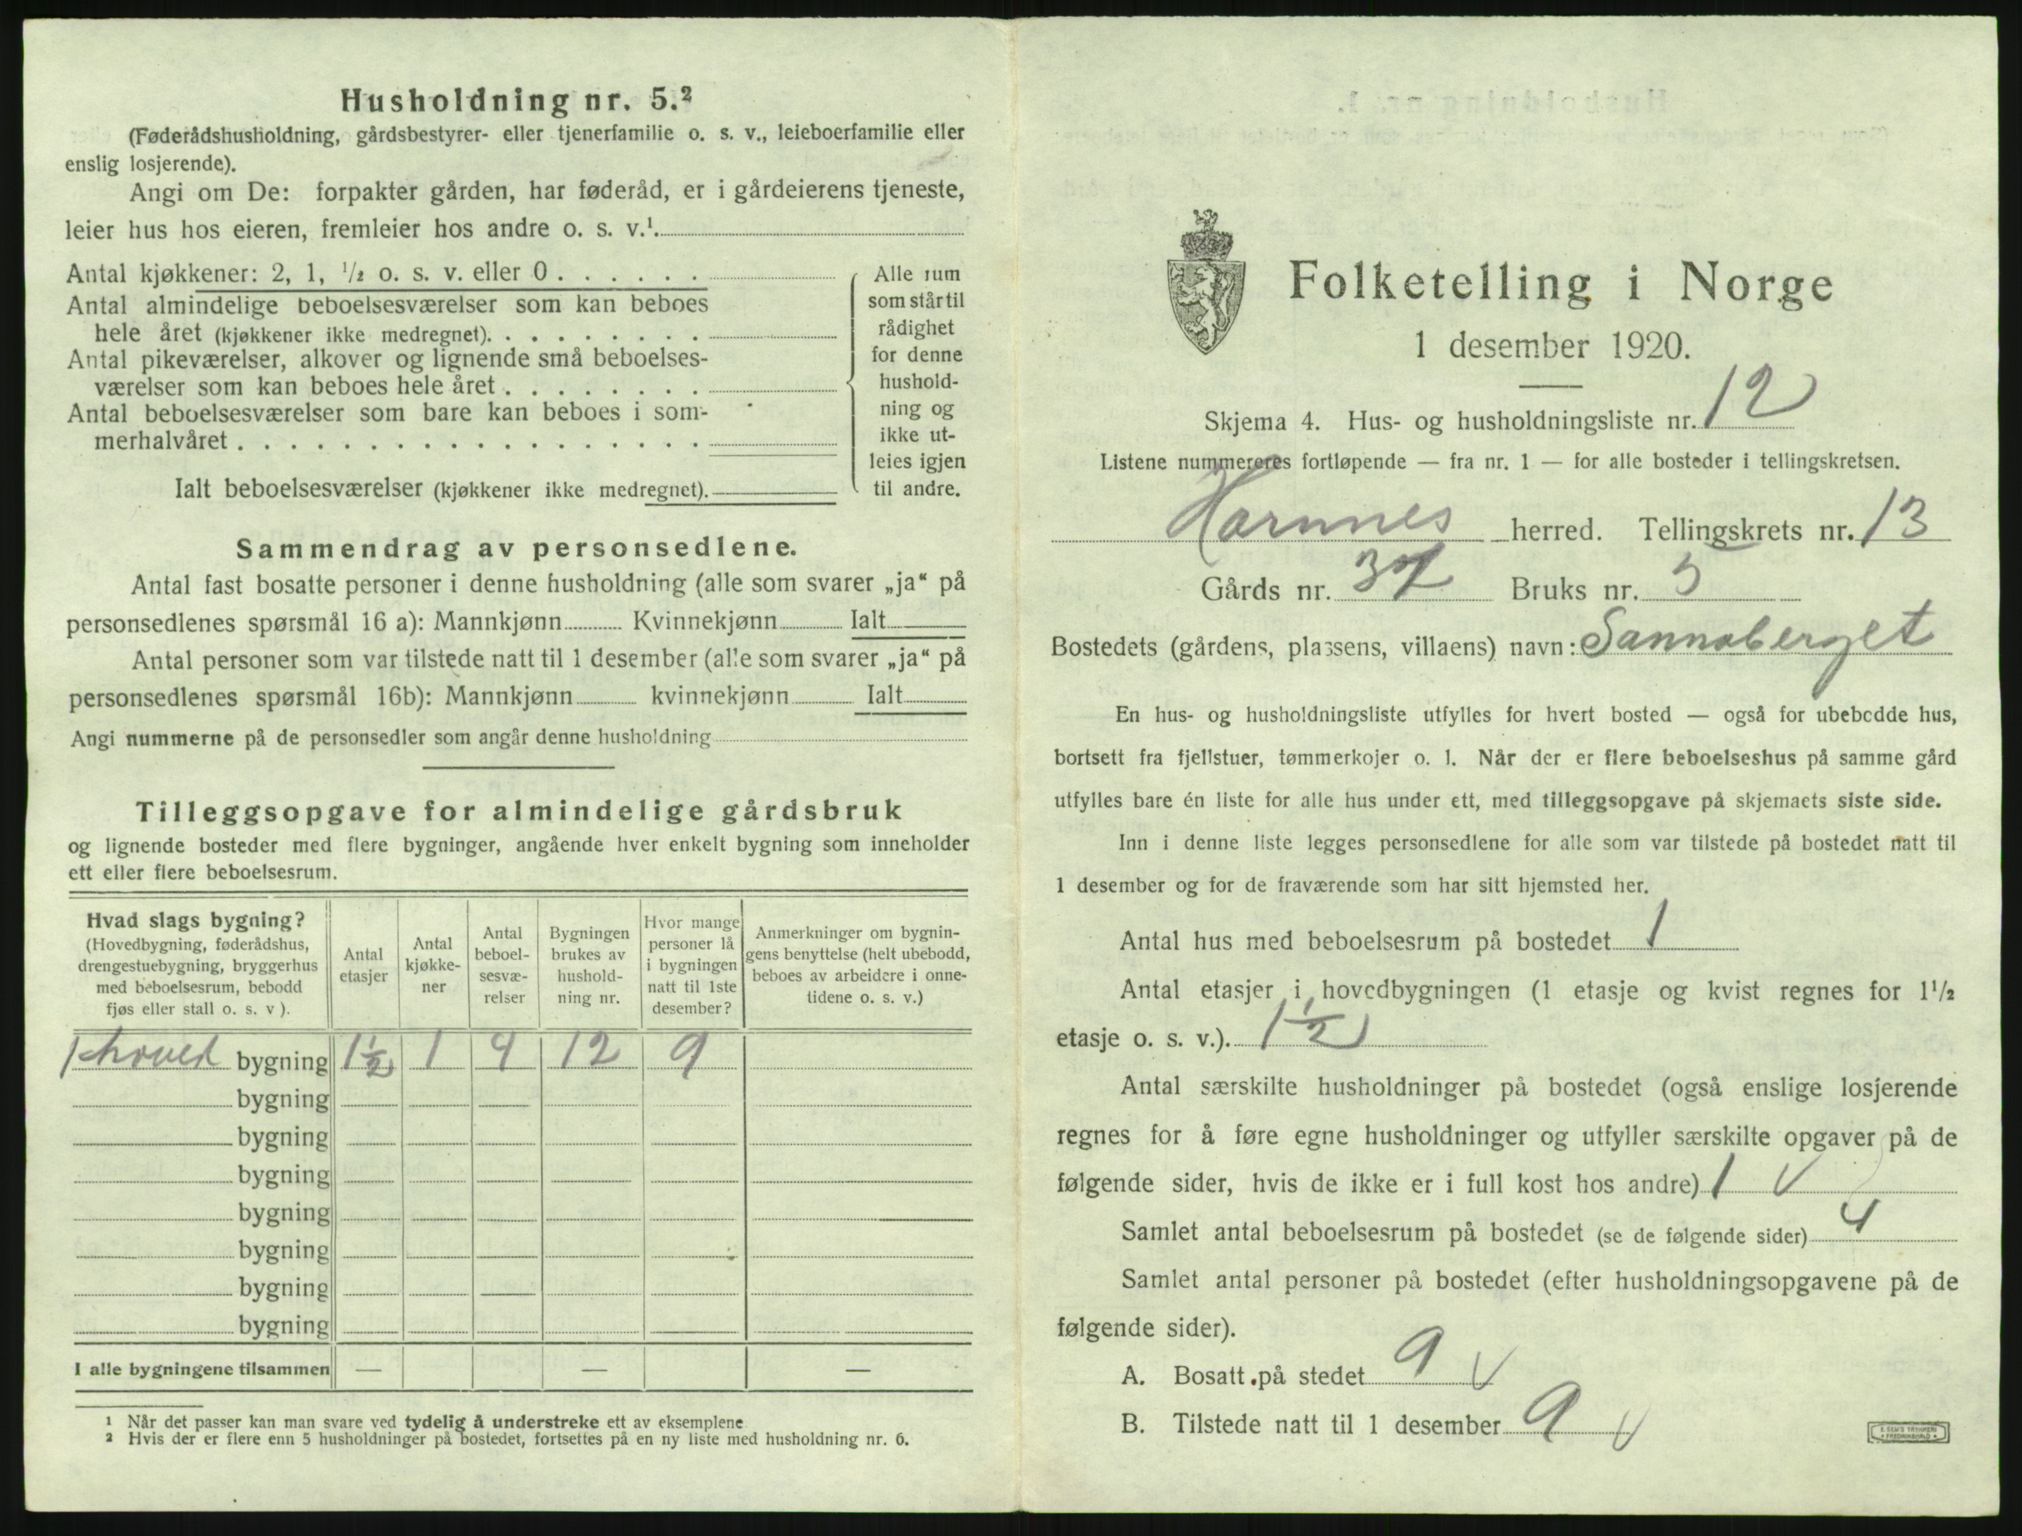 Husholdning nr. 5.²
(Føderådshusholdning, gårdsbestyrer- eller tjenerfamilie o. s. v., leieboerfamilie eller
enslig losjerende).
Angi om De: forpakter gården, har føderåd, er i gårdeierens tjeneste,
leier hus hos eieren, fremleier hos andre o. s. v.¹.
Antal kjøkkener: 2, 1, ½ o. s. v. eller 0 . . . . . .
Antal almindelige beboelsesværelser som kan beboes
hele året (kjøkkener ikke medregnet). . . . . . . . .
Antal pikeværelser, alkover og lignende små beboelses-
værelser som kan beboes hele året . . . . . . . .
Antal beboelsesværelser som bare kan beboes i som-
merhalvåret . . . . . . . . . . . . . . . . . .
Ialt beboelsesværelser (kjøkkener ikke medregnet).
Alle rum
som står til
rådighet
for denne
hushold-
ning og
ikke ut-
leies igjen
til andre.
Sammendrag av personsedlene.
Antal fast bosatte personer i denne husholdning (alle som svarer „ja“ på
personsedlenes spørsmål 16 a): Mannkjønn Kvinnekjønn Ialt
Antal personer som var tilstede natt til 1 desember (alle som svarer „ja“ på
personsedlenes spørsmål 16b): Mannkjønn kvinnekjønn Ialt
Angi nummerne på de personsedler som angår denne husholdning
Tilleggsopgave for almindelige gårdsbruk
og lignende bosteder med flere bygninger, angående hver enkelt bygning som inneholder
ett eller flere beboelsesrum.
Hvad slags bygning?
(Hovedbygning, føderådshus,
drengestuebygning, bryggerhus
med beboelsesrum, bebodd
fjøs eller stall o. s. v ).
Antal
etasjer
Antal
kjøkke-
ner
Antal
beboel-
sesvæ-
relser
Bygningen
brukes av
hushold-
ning nr.
Hvor mange
personer lå
i bygningen
natt til 1ste
desember?
Anmerkninger om bygnin-
gens benyttelse (helt ubebodd,
beboes av arbeidere i onne-
tidene o. s. v.)
1 hoved bygning 1½ 1 4 12 9
bygning
bygning
bygning
bygning
bygning
bygning
bygning
I alle bygningene tilsammen — — —
¹ Når det passer kan man svare ved tydelig å understreke ett av eksemplene
² Hvis der er flere enn 5 husholdninger på bostedet, fortsettes på en ny liste med husholdning nr. 6.
Folketelling i Norge
1 desember 1920.
Skjema 4. Hus- og husholdningsliste nr. 12
Listene nummereres fortløpende — fra nr. 1 — for alle bosteder i tellingskretsen.
Hornnes herred. Tellingskrets nr. 13
Gårds nr. 37 Bruks nr. 5
Bostedets (gårdens, plassens, villaens) navn: Sannaberget
En hus- og husholdningsliste utfylles for hvert bosted — også for ubebodde hus,
bortsett fra fjellstuer, tømmerkojer o. l. Når der er flere beboelseshus på samme gård
utfylles bare én liste for alle hus under ett, med tilleggsopgave på skjemaets siste side.
Inn i denne liste legges personsedlene for alle som var tilstede på bostedet natt til
1 desember og for de fraværende som har sitt hjemsted her.
Antal hus med beboelsesrum på bostedet 1
Antal etasjer i hovedbygningen (1 etasje og kvist regnes for 1½
etasje o. s. v.). 1½
Antal særskilte husholdninger på bostedet (også enslige losjerende
regnes for å føre egne husholdninger og utfyller særskilte opgaver på de
følgende sider, hvis de ikke er i full kost hos andre) 1 v
Samlet antal beboelsesrum på bostedet (se de følgende sider) 4
Samlet antal personer på bostedet (efter husholdningsopgavene på de
følgende sider).
A. Bosatt på stedet 9 v
B. Tilstede natt til 1 desember 9 v